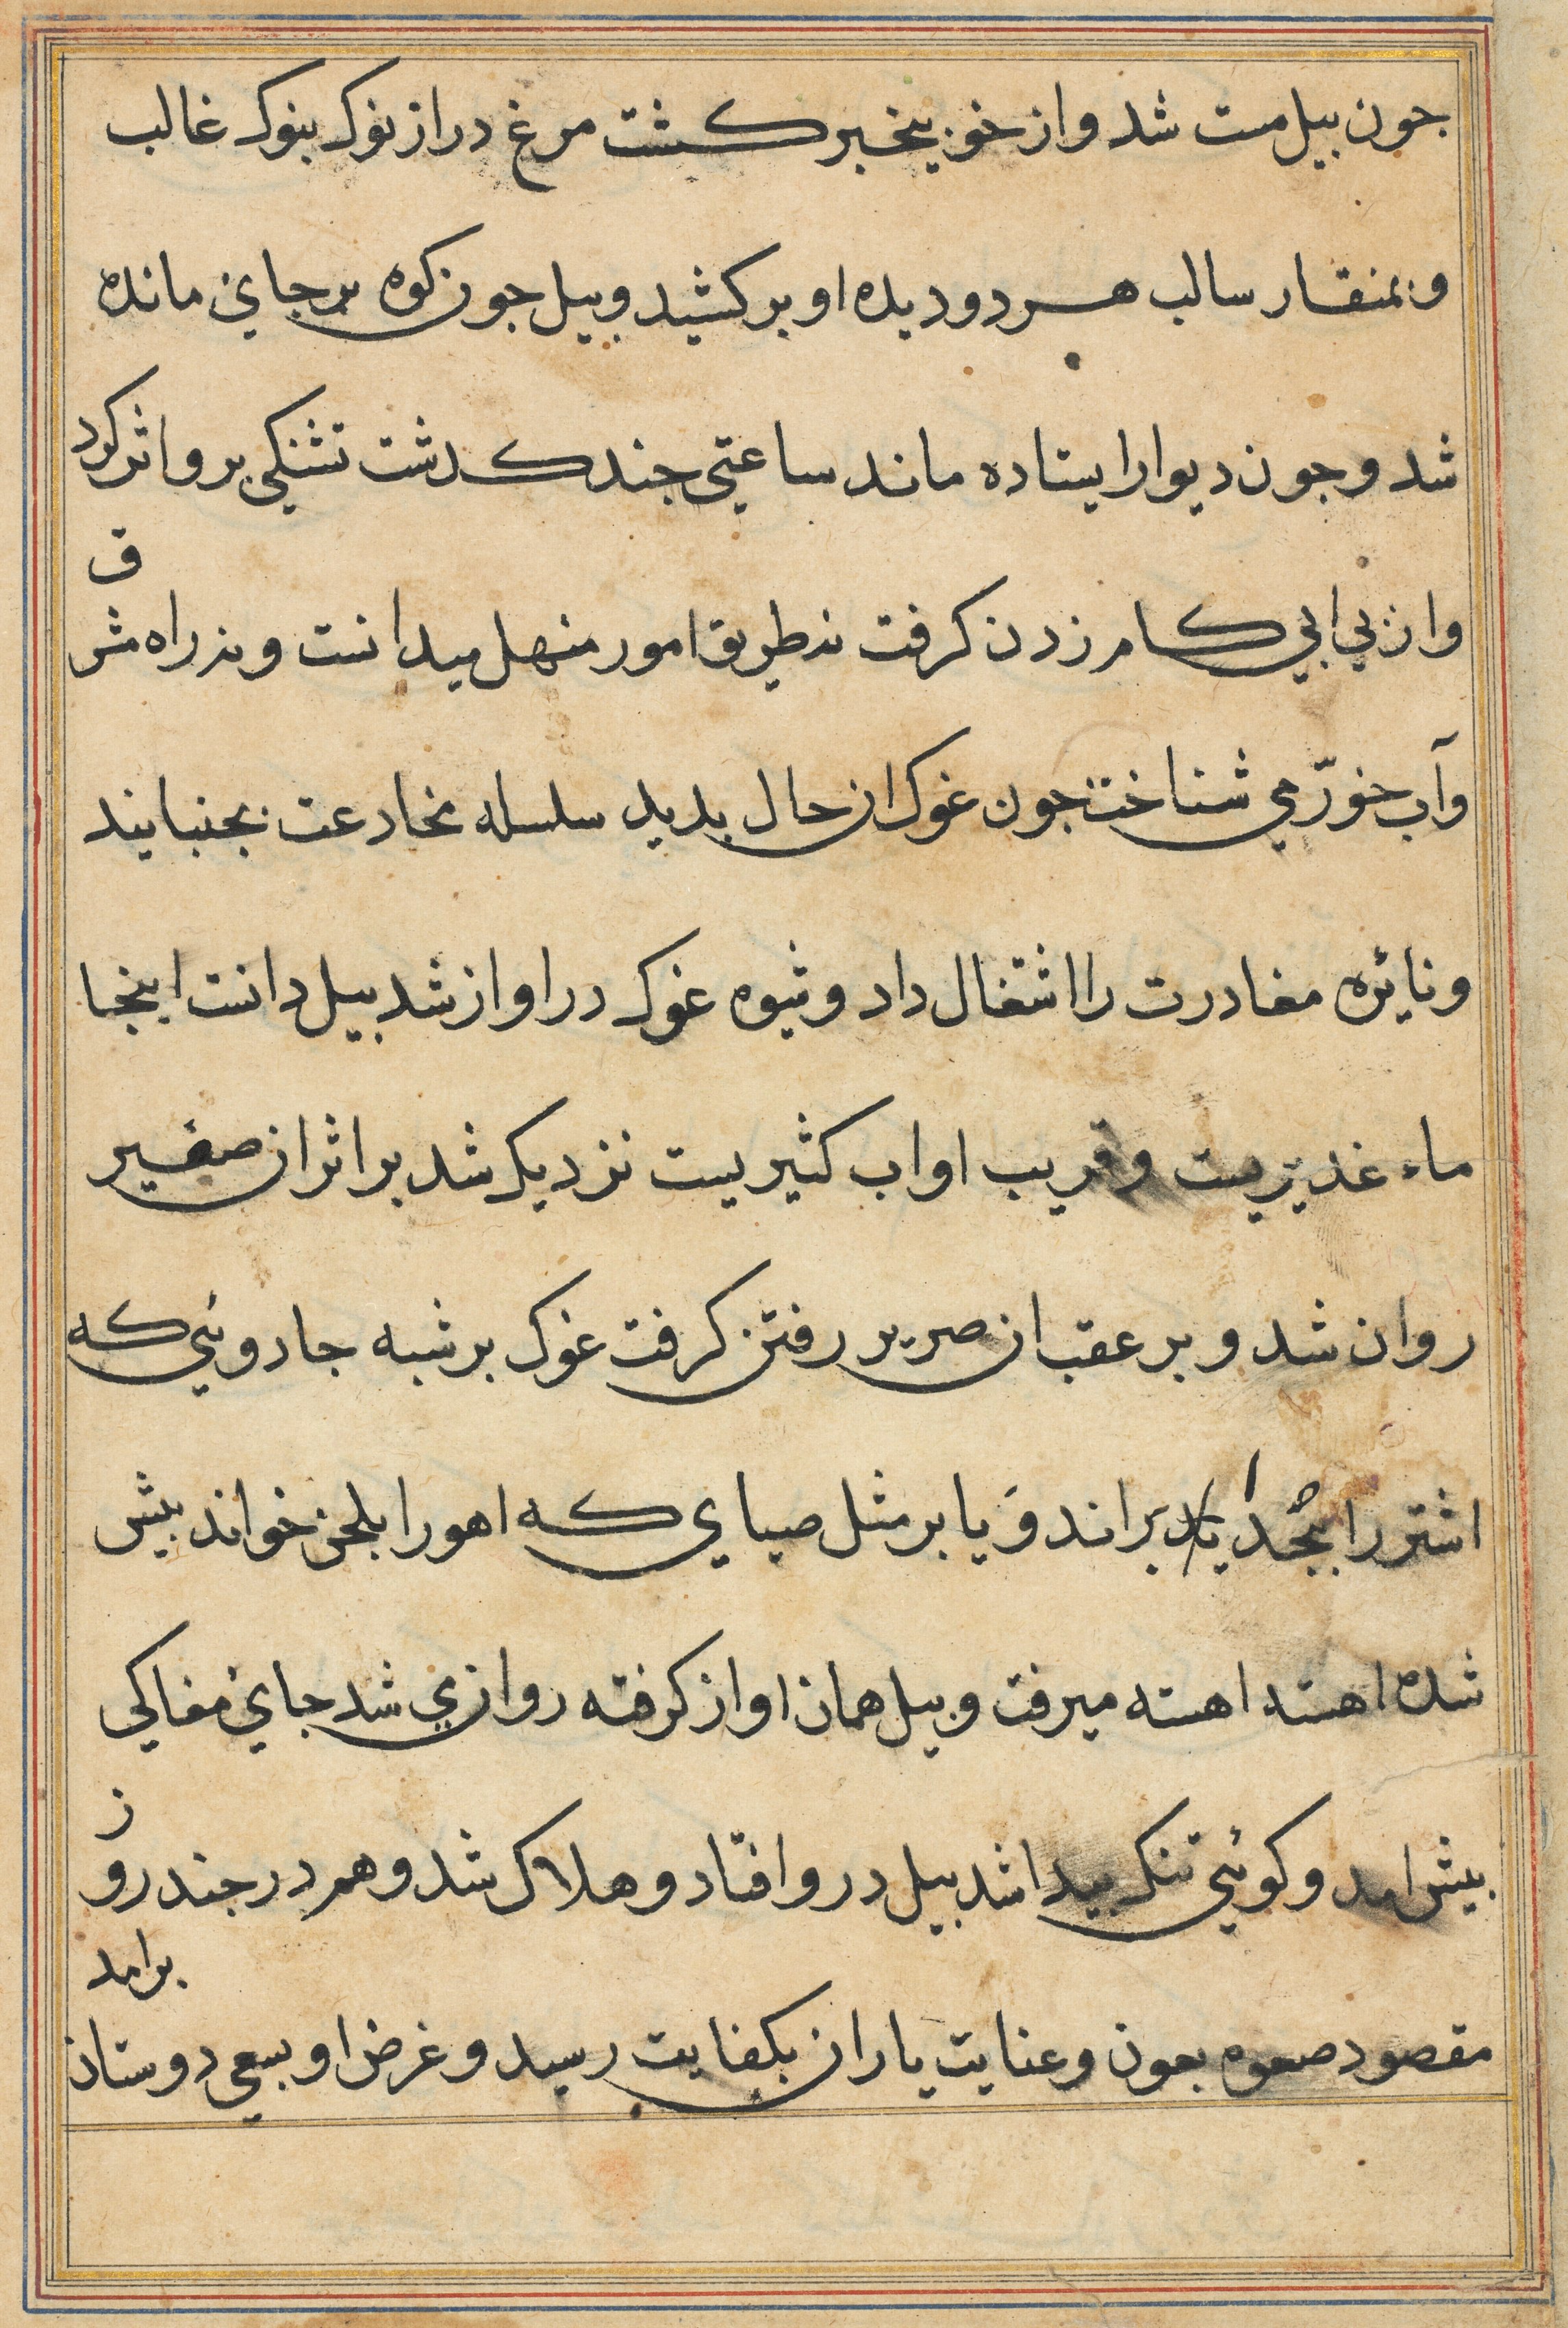 جون بیل مست شد و از خود بیخبر کشت مرغ دراز نوک بنوک غالب
و بمنقار سالب هر دو دیده او بر کشید و بیل جون کوه بر جای مانده
شد و جون دیوار ایستاده ماند ساعتی جند کدشت تشنکی برو اثر کرد
و از بی ابی کام زدن کرفت نه طریق امور منهل میدانست و نه راه مشرق
و آب خور می شناخت جون غوک ان حال بدید سلسله مخادعت بجنبانید
و نائره مغادرت را اشتغال داد و شیوه غوک در اواز شد بیل دانست اینجا
ماء غدیریست و قریب او اب کثیریست نزدیک شد بر اثر ان صفیر
روان شد و بر عقب ان صریر رفتن کرفت غوک بر شبه جادوئی که
اشتر را بحدا براند وَ یا بر مثل صیای که اهو را بلحن خواند بیش
شده اهسته اهسته میرفت و بیل همان اواز کرفته روان می شد جای مغاکی
بیش امد و کوئی تنک بیدا شد بیل درو افتاد و هلاک شد و هم در جند روز
مقصود صعوه بعون و عنایت یاران بکفایت رسید و غرض او بسعی دوستان برامد